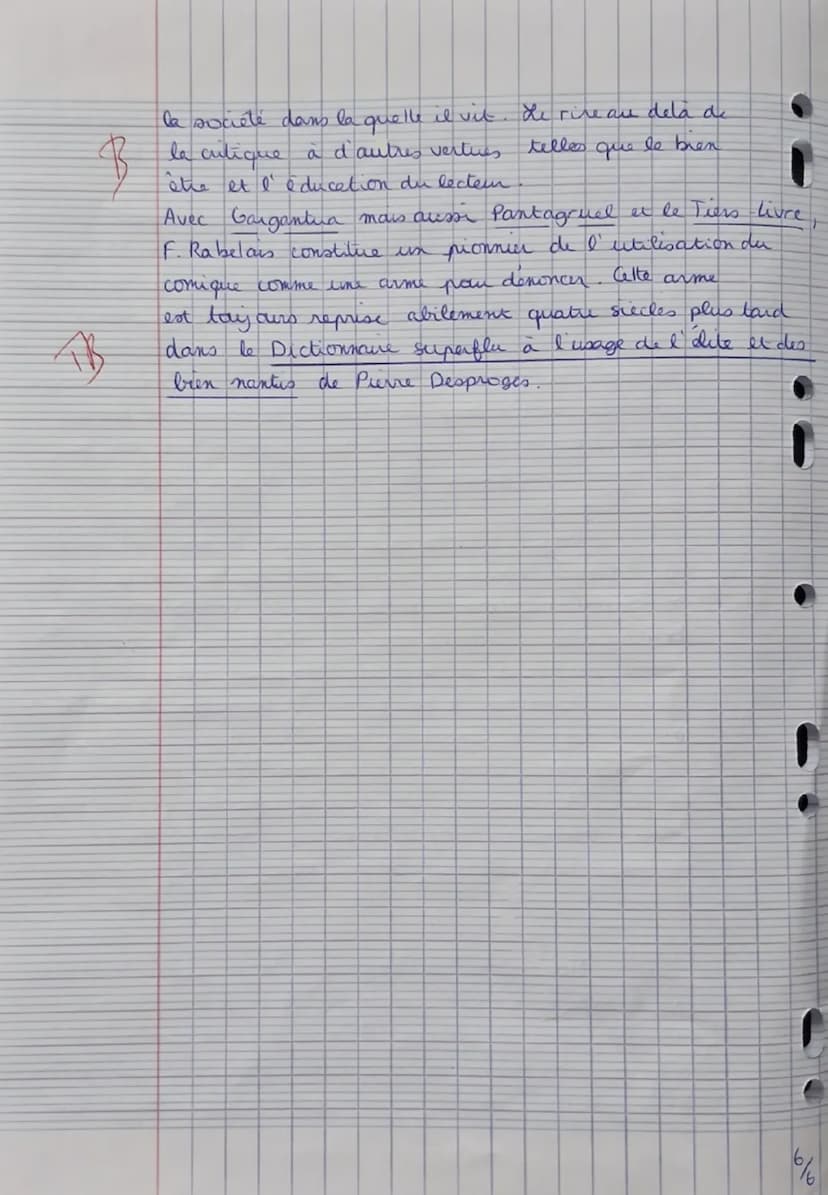 la société dans laquelle il vit. Le rire au delà de
B la critique à d'autres vertues telles que le bien
être et l'éducation du lecteur.
Avec Gargantua mais aussi Pantagruel et le Tiers livre,
F. Rabelais constitue un pionnier de l'utilisation du
comique comme une arme pour dénoncer. Cette arme
est toujours reprise abilement quatre siècles plus tard
TB dans le Dictionnaire superflu à l'usage de l'élite et des
bien nantis de Pierre Desproges.
6/6